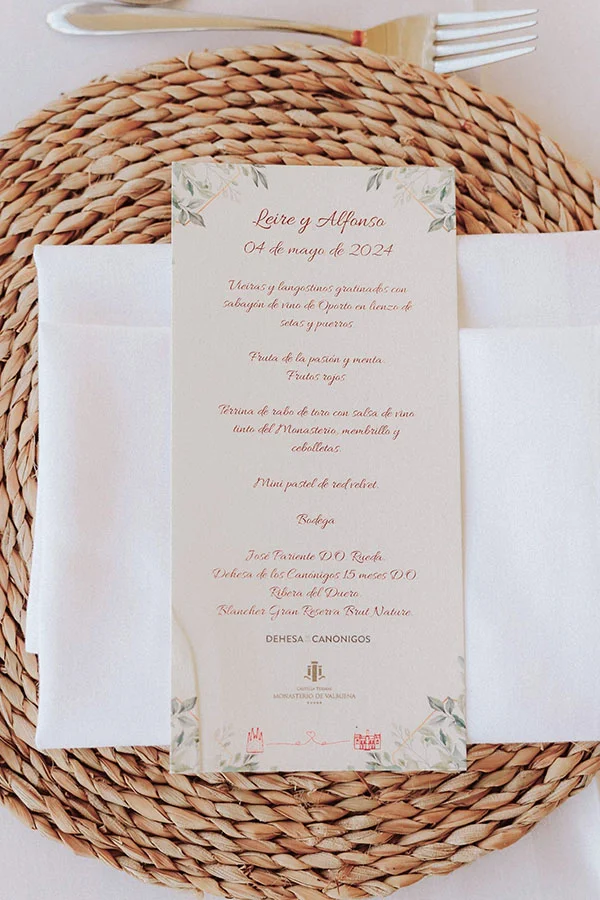 Leire y Alfonso
04 de mayo de 2024
Vieiras y langostinos gratinados con
sabayón de vino de Oporto en lienzo de
setas y puerros.
Fruta de la pasión y menta.
Frutos rojos
Terrina de rabo de toro con salsa de vino
tinto del Monasterio, membrillo y
cebolletas.
Mini pastel de red velvet.
Bodega
José Pariente D.O. Rueda.
Dehesa de los Canónigos 15 meses D.O
Ribera del Duero.
Blancher Gran Reserva Brut Nature.
DEHESA DE LOS CANONIGOS
CASTILLA TERMAL
MONASTERIO DE VALBUENA